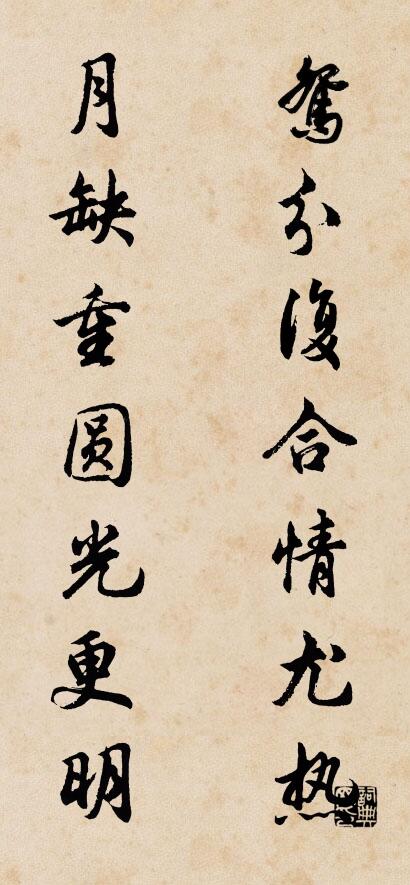 鸳分復合情尤热
月缺重圆光更明